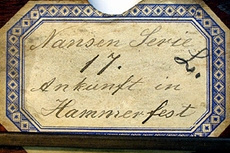 Nansen Serie
17. L.
Ankunft in
Hammerfest